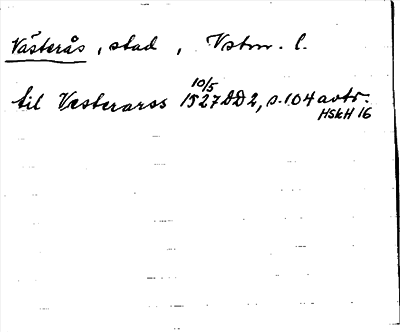 Västerås, stad, Vstm. l.
10/5
til Vesterarss 1527 DD2, s. 104 avtr.
HSkH 16